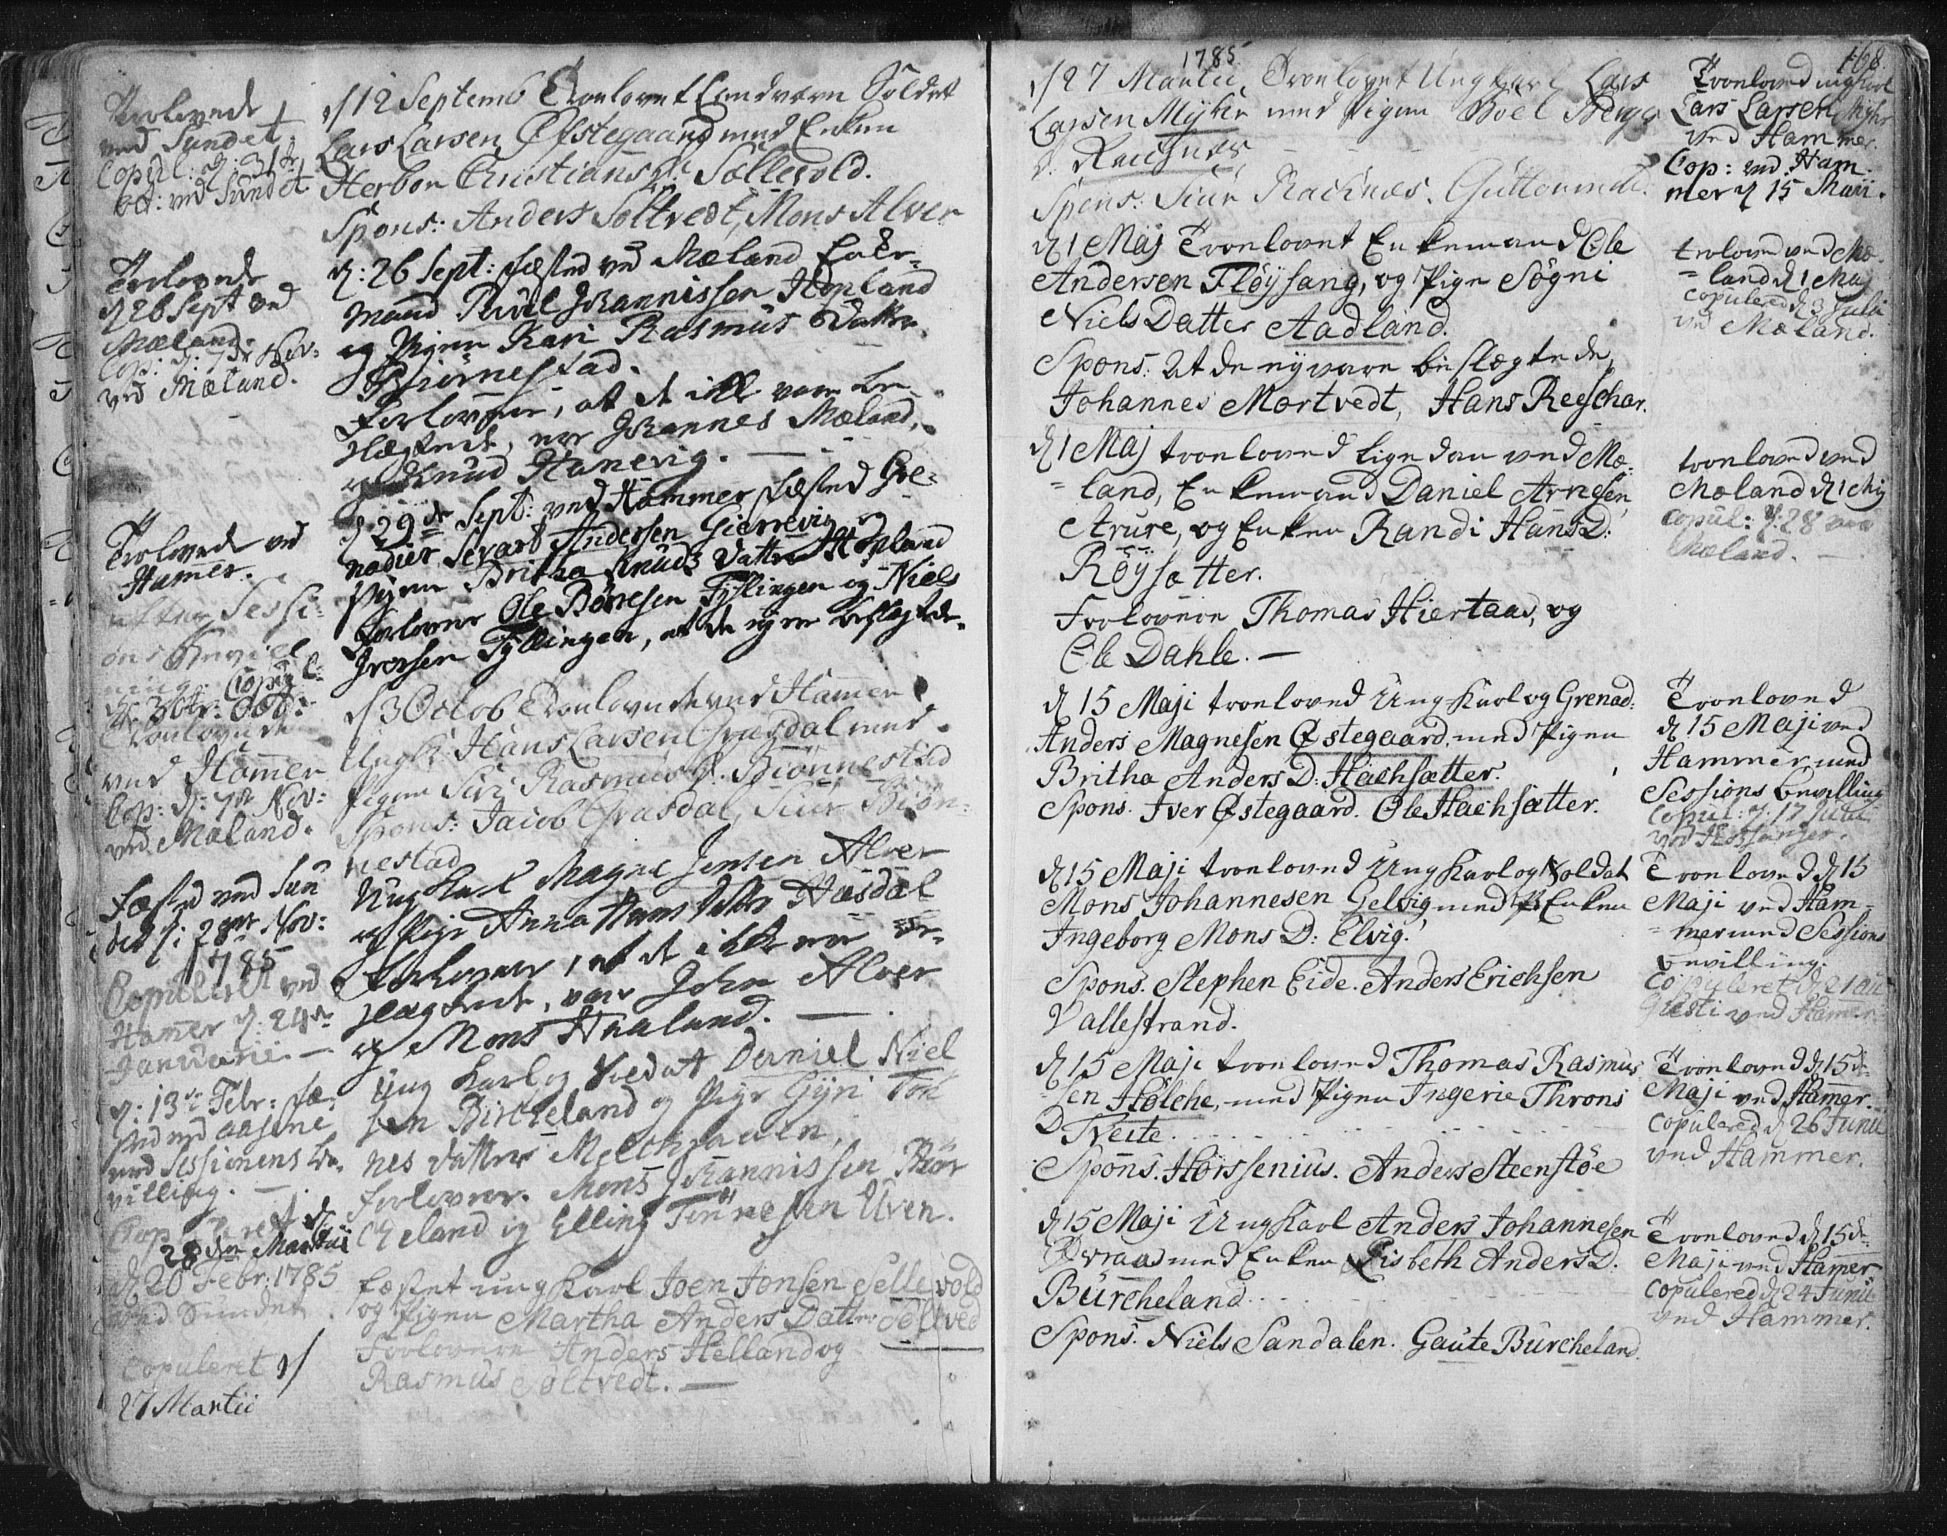 Trolovede
ved Sundet.
Copul: d: 31te
Oct: ved Sundet
d 12 Septemb Troelovet Landværn Soldat
Lars Larsen Øfstegaard med Enken
Herbor Christians D: Sællevold.
Spons: Anders Soltvedt, Mons Alver
Trolovede
d 26 Sept ved
Mæland.
Cop: d: 7de Nov:
ved Mæland.
d: 26 Sept: fæsted ved Mæland Enke-
mand Povel Johannissen Hopland
og Pigen Kari Rasmus Datter
Biørnestad.
Forlovere, at de ikke vare be-
slægtede, var Johannes Mæland,
og Knud Hanevig.
Trolovede ved
Hamer.
efter Sessi-
ons Bevil
ning. Copul:
d: 30te Oct:
d 29de Sept: ved Hammer fæsted Gre-
nadier Sevart Andersen Gierrevig og
Pigen Britha Knuds Datter Hopland
Forlovere Ole Børresen Tyslingen og Niels
Iversen Tyllingen, at de ey ere beslegtede.
Troelovede
ved Hamer
Cop: d: 7de Nov:
ved Mæland.
d 3 Octob Troelovede ved Hamer
Ungk: Hans Larsen Grasdal med
Pigen Siri Rasmus D. Biønnestad
Spons: Jacob Grasdal, Siur Biøn-
nestad
Fæsted ved Sun
det d: 28de Nov:
1785
Copuleret ved
Hamer d: 24de
Januarii.
Ung Karl Magne Jensen Alver
og Pige Anna Hans Datter Hasdal
Forlovere, at de ikke var be-
slægtede, var John Alver
og Mons Haaland.
d: 13de Febr: fæ-
sted ved Aasene
med Sessionens be-
villing.
Copuleret d.
28de Martii
Ung Karl og Soldat Daniel Niel
sen Bircheland og Pige Gyri Tøn
nes Datter Melchraaen,
Forlovere. Mons Johannissen Bør
cheland og Elling Tønnesen Uren.
d 20 Febr: 1785
ved Sundet
Copuleret d
27 Martii
fæstet ung Karl Joen Jonsen Sellevold
og Pigen Martha Anders Datter Soltved
Forlovere Anders Helland og
Rasmus Soltvedt.
1785
168.
d 27 Martii Troelovet Ungkarl Lars
Larsen Myhre med Pigen Boel Børge
D. Racknes
Spons: Siur Racknes. Guttorm
Troeloved ungkarl
Lars Larsen Myhr
ved Hammer.
Cop: ved Ham-
mer d 15 Maii.
d 1 Maj Troelovet Enkemand Ole
Andersen Fløysang, og Pige Søgni
Niels Datter Aadland.
Spons: at de ey vare beslægtede,
Johannes Mortvedt, Hans Reyschar.
trolovede ved Mæ-
land d 1 Maj
copulered d 3 Julii
ved Mæland.
d 1 Maj troeloved ligedan ved Mæ-
land, Enkemand Daniel Arnesen
Arure, og Enken Randi Hans D:
Røysætter.
Forlovere Thomas Hiertaas, og
Ole Dahle.
troeloved ved
Mæland d 1 Maj
Copul: d: 28 ved
Mæland.
d 15 Maji troeloved Ung Karl og Grenad:
Anders Magnesen Østegaard, med Pigen
Britha Anders D: Hachsætter.
Spons. Iver Østegaard. Ole Hachsætter.
Troeloved
d 15 Maji ved
Hammer med
Sessions bevilling
Copul: d: 17 Julii
ved Hosanger.
d 15 Maji troeloved Ung Karl og Soldat
Mons Johannesen Gelvig med Enken
Ingeborg Mons D: Elvig.
Spons. Stephen Eide. Anders Erichsen
Vallestrand.
Troeloved d 15
Maji ved Ham-
mer med Sessions
bevilling.
Copuleret d 21 Au
gusti ved Hamer
d 15 Maji troeloved Thomas Rasmus
sen Holche, med Pigen Ingerie Throns
D Neste.
Spons. Horssenius. Anders Steenstøe
Troeloved d 15de
Maji ved Hamer.
Copulered d 26 Junii
ved Hammer.
d 15 Maji Ung Karl Anders Johannesen
Qvraas med Enken Lisbeth Anders D.
Burcheland
Spons. Niels Sandalen. Gaute Burcheland.
Troeloved d 15de
Maji ved Hamer
Copulered d 24 Junii
ved Hammer.